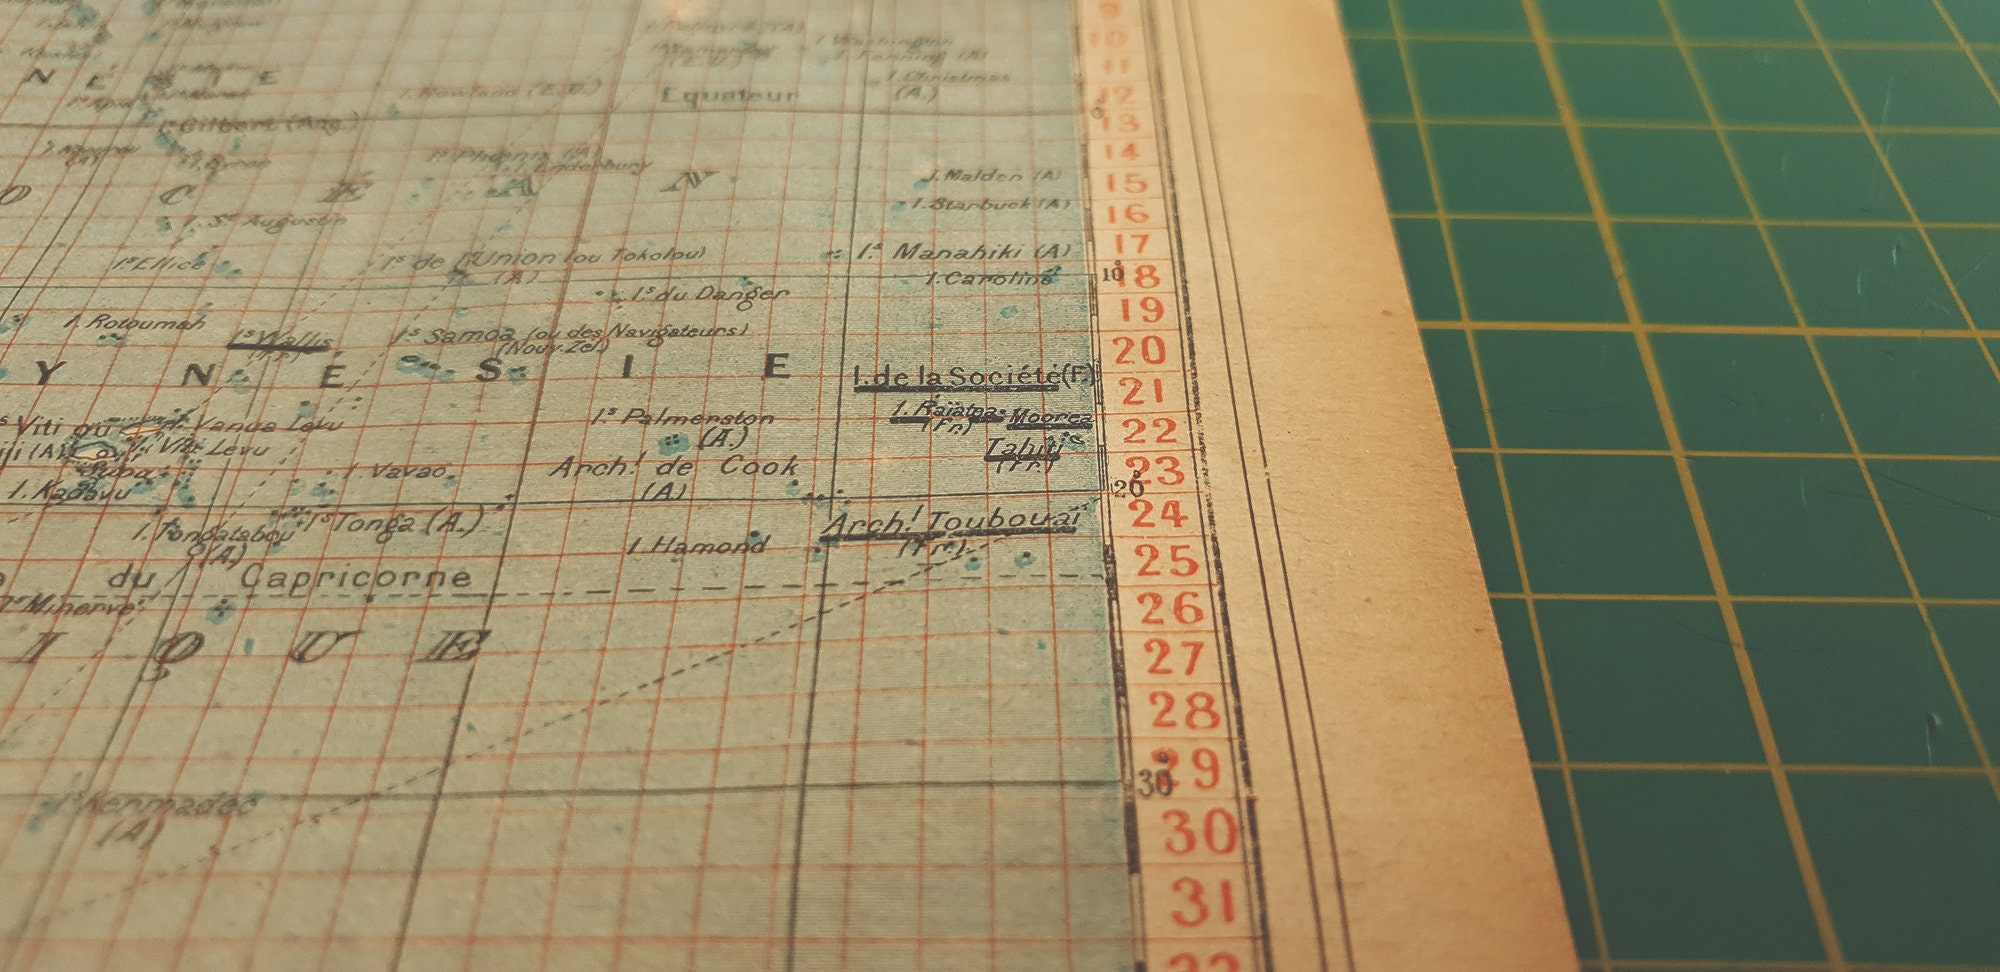 N É S I E
Equateur
I. Christmas
(A.)
Is Gilbert (Ang.)
Is Phœnix (A)
Enderbury
O C É A N
I. Malden (A)
I. Starbuck (A)
I. St Augustin
Is Ellice
Is de l'Union (ou Tokolou)
(A)
Is Manahiki (A)
I. Caroline
Is du Danger
I. Rotoumah
Is Wallis
(Fr.)
Is Samoa (ou des Navigateurs)
(Nouv. Zél.)
Y N É S I E
I. de la Société (F.)
I. Raïatea
(Fr.)
Moorea
Tahiti
(Fr.)
Is Viti ou
I. Vanua Levu
Viti Levu
I. Kadavu
I. Vavao
Is Palmerston
(A.)
Archl de Cook
(A)
I. Tongatabou
(A)
Is Tonga (A.)
I. Hamond
Archl Toubouaï
(Fr.)
du Capricorne
Minerve
I Q U E
Is Kermadec
(A)
9
10
11
12
0°
13
14
15
16
17
10°
18
19
20
21
22
23
20°
24
25
26
27
28
29
30°
30
31
32